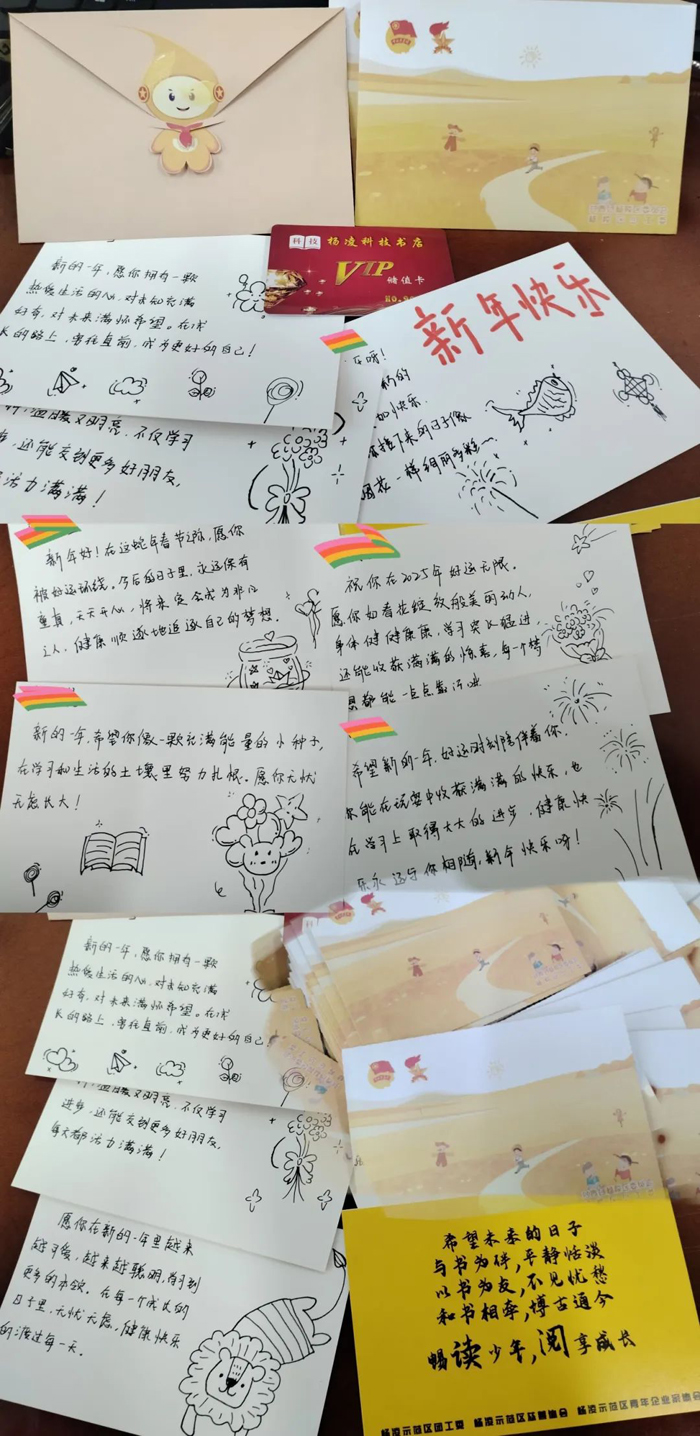 科技
杨凌科技书店
VIP
储值卡
新的一年,愿你拥有一颗
热爱生活的心,对未知充满
好奇,对未来满怀希望。在成
长的路上,勇往直前,成为更好的自己!
不仅学习
还能交到更多好朋友,
活力满满!
新年快乐
加快乐
接下来的日子像
烟花一样绚丽多彩~
新年好!在这蛇年春节之际,愿你
被好运环绕。今后的日子里,永远保有
童真,天天开心,将来定会成为非凡
之人,健康顺遂地追逐自己的梦想。
祝你在2025年好运无限。
愿你如春花绽放般美丽动人,
身体健健康康,学习突飞猛进
还能收获满满的惊喜,每一个梦
想都能一点点
新的一年,希望你像一颗充满能量的小种子,
在学习和生活的土壤里努力扎根。愿你无忧
无虑长大!
希望新的一年,好运时刻陪伴着你,
你能在玩耍中收获满满的快乐,也
在学习上取得大大的进步,健康快
乐永远与你相随,新年快乐呀!
新的一年,愿你拥有一颗
热爱生活的心,对未知充满
好奇,对未来满怀希望。在成
长的路上,勇往直前,成为更好的自己!
不仅学习
进步,还能交到更多好朋友,
每天都活力满满!
愿你在新的一年里越来
越可爱,越来越聪明,学习到
更多的本领。在每一个成长的
日子里,无忧无虑,健康快乐
的渡过每一天。
希望未来的日子
与书为伴,平静恬淡
以书为友,不见忧愁
和书相牵,博古通今
畅读少年,阅享成长
杨凌示范区团工委
杨凌示范区青年企业家协会